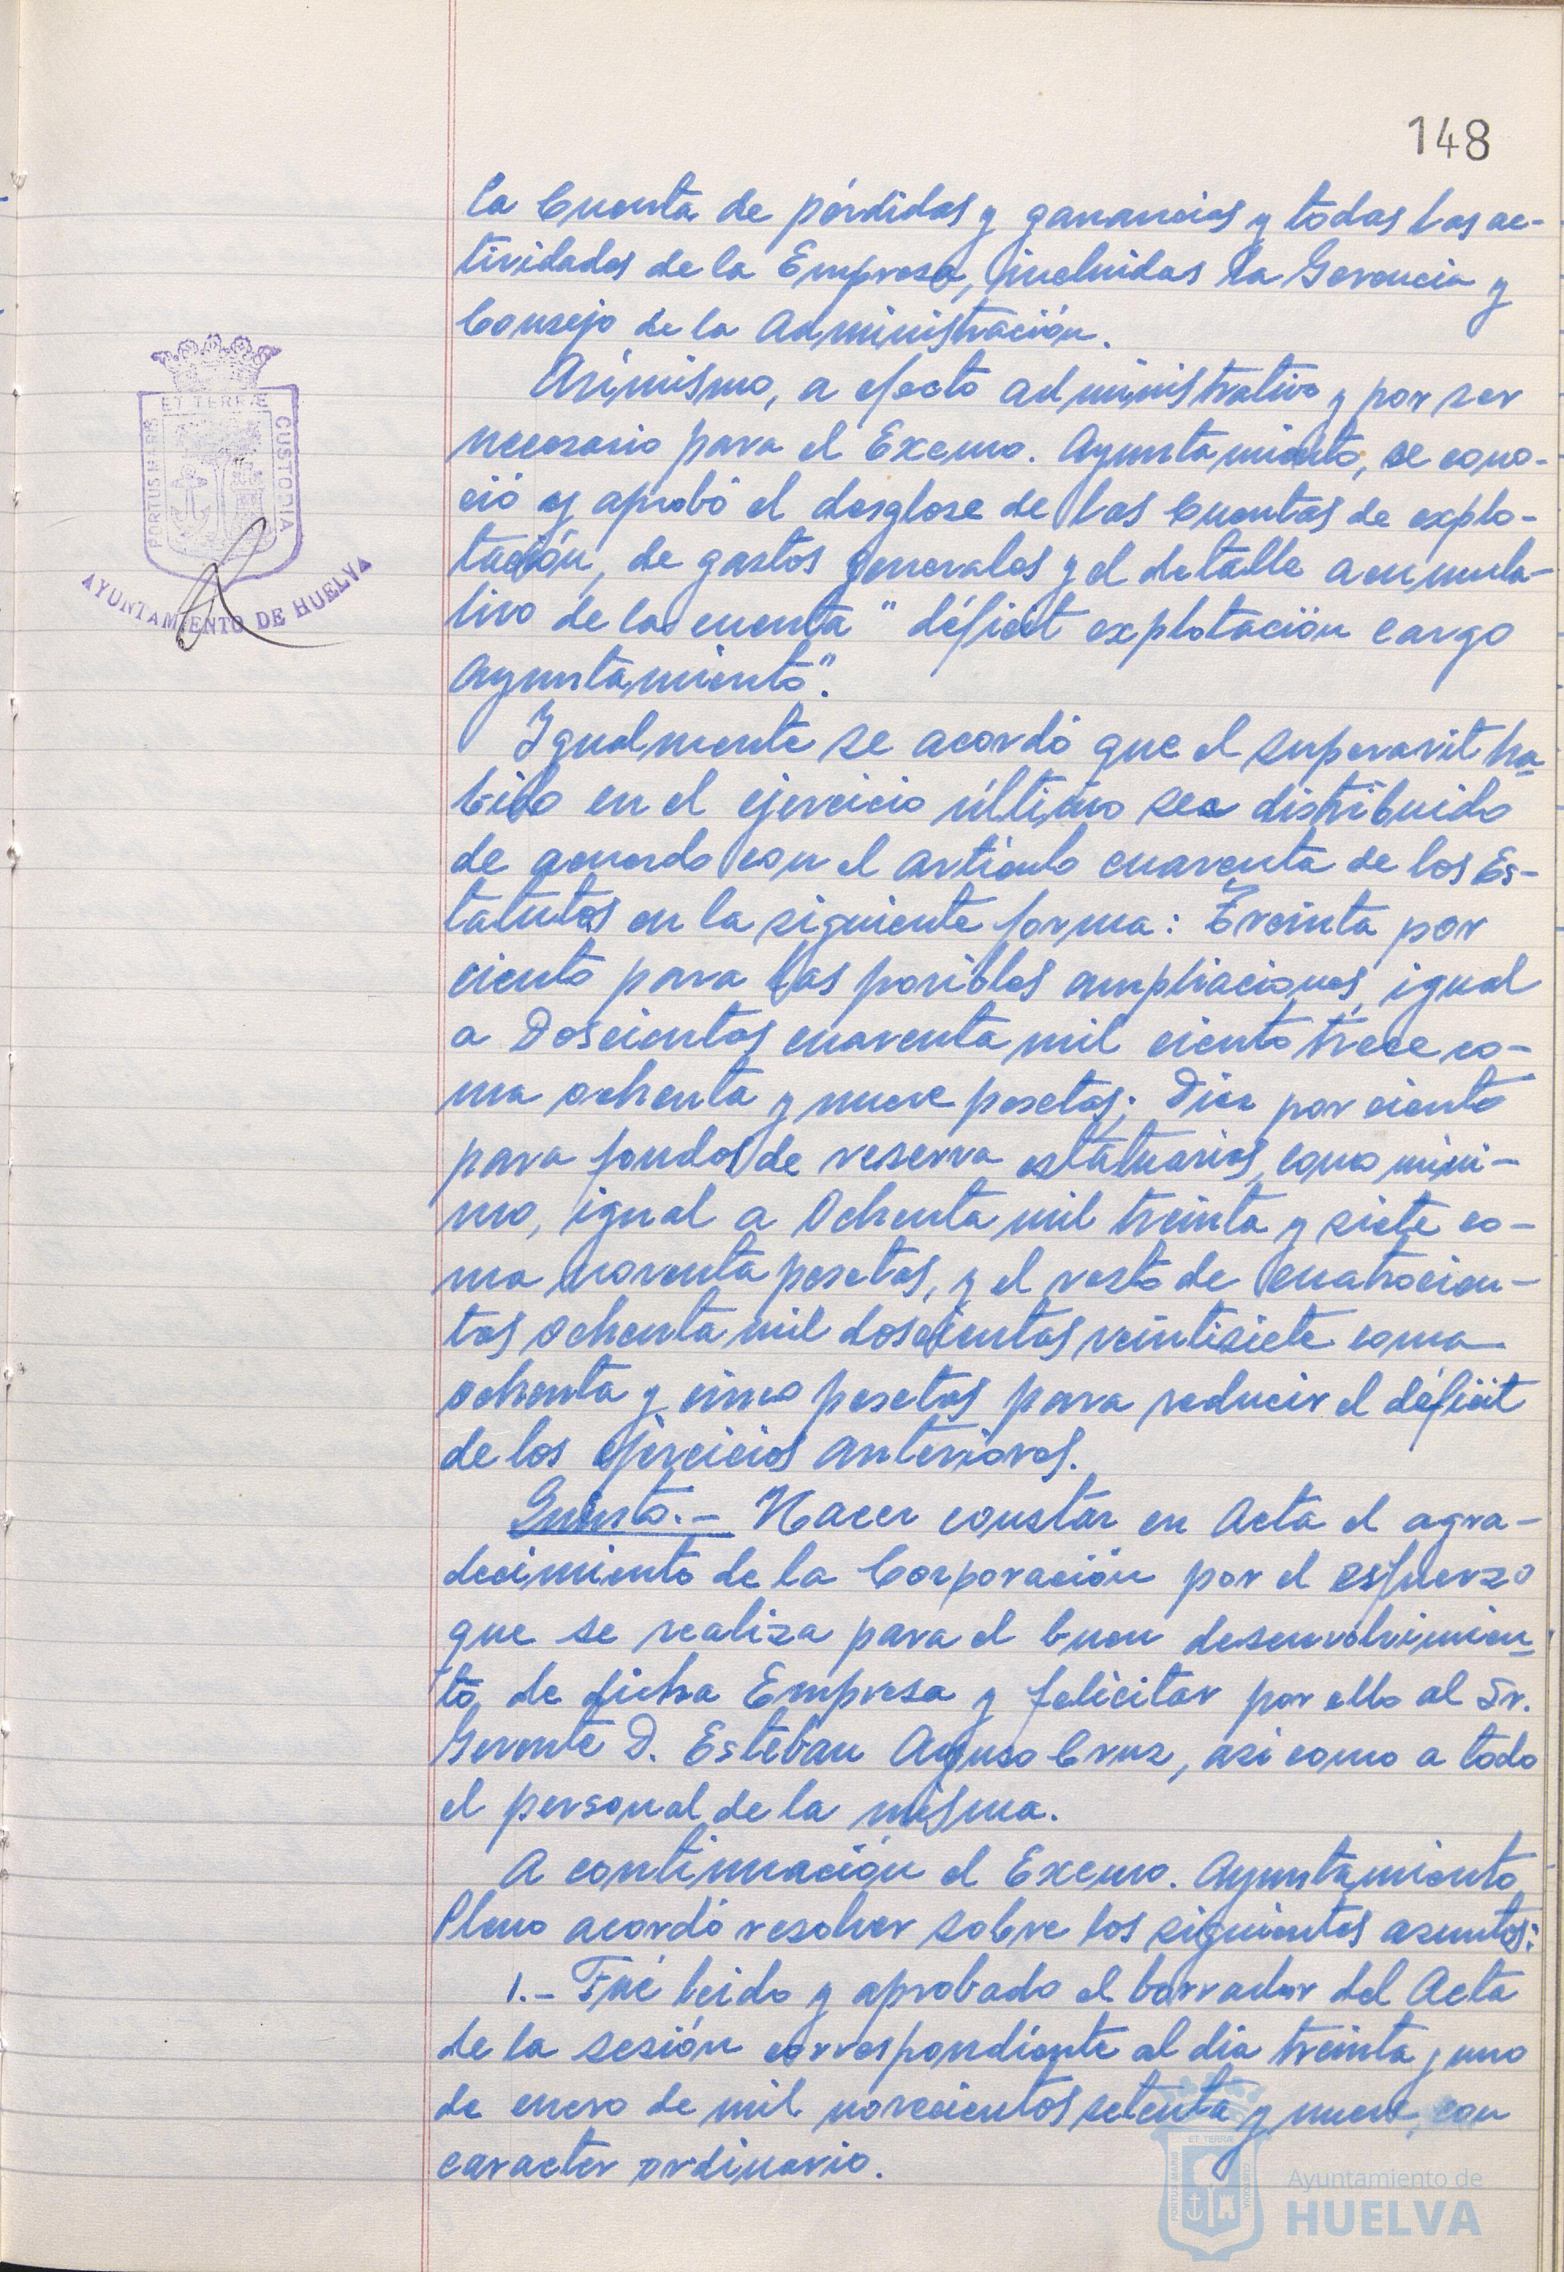 148
la Cuenta de pérdidas y ganancias y todas las ac-
tividades de la Empresa, incluidas la Gerencia y
Consejo de la Administración.
Asímismo, a efecto administrativo y por ser
necesario para el Excmo. Ayuntamiento, se cono-
ció y aprobó el desglose de las Cuentas de explo-
tación, de gastos generales y el detalle acumula-
tivo de la cuenta "déficit explotación cargo
Ayuntamiento".
Igualmente se acordó que el superavit ha-
bido en el ejercicio último sea distribuido
de acuerdo con el artículo cuarenta de los Es-
tatutos en la siguiente forma: Treinta por
ciento para las posibles ampliaciones, igual
a Doscientas cuarenta mil ciento trece co-
ma ochenta y nueve pesetas; Diez por ciento
para fondos de reserva estatuarios, como míni-
mo, igual a Ochenta mil treinta y siete co-
ma noventa pesetas, y el resto de Cuatrocien-
tas ochenta mil doscientas veintisiete coma
ochenta y cinco pesetas para reducir el déficit
de los ejercicios anteriores.
Quinto.- Hacer constar en Acta el agra-
decimiento de la Corporación por el esfuerzo
que se realiza para el buen desenvolvimien-
to de dicha Empresa y felicitar por ello al Sr.
Gerente D. Esteban Ayuso Cruz, asi como a todo
el personal de la misma.
A continuación el Excmo. Ayuntamiento
Pleno acordó resolver sobre los siguientes asuntos:
1.- Fué leido y aprobado el borrador del Acta
de la sesión correspondiente al dia treinta y uno
de enero de mil novecientos setenta y nueve, con
caracter ordinario.
PORTUS MARIS
ET TERRÆ
CUSTODIA
AYUNTAMIENTO DE HUELVA
PORTUS MARIS
ET TERRÆ
CUSTODIA
Ayuntamiento de
HUELVA